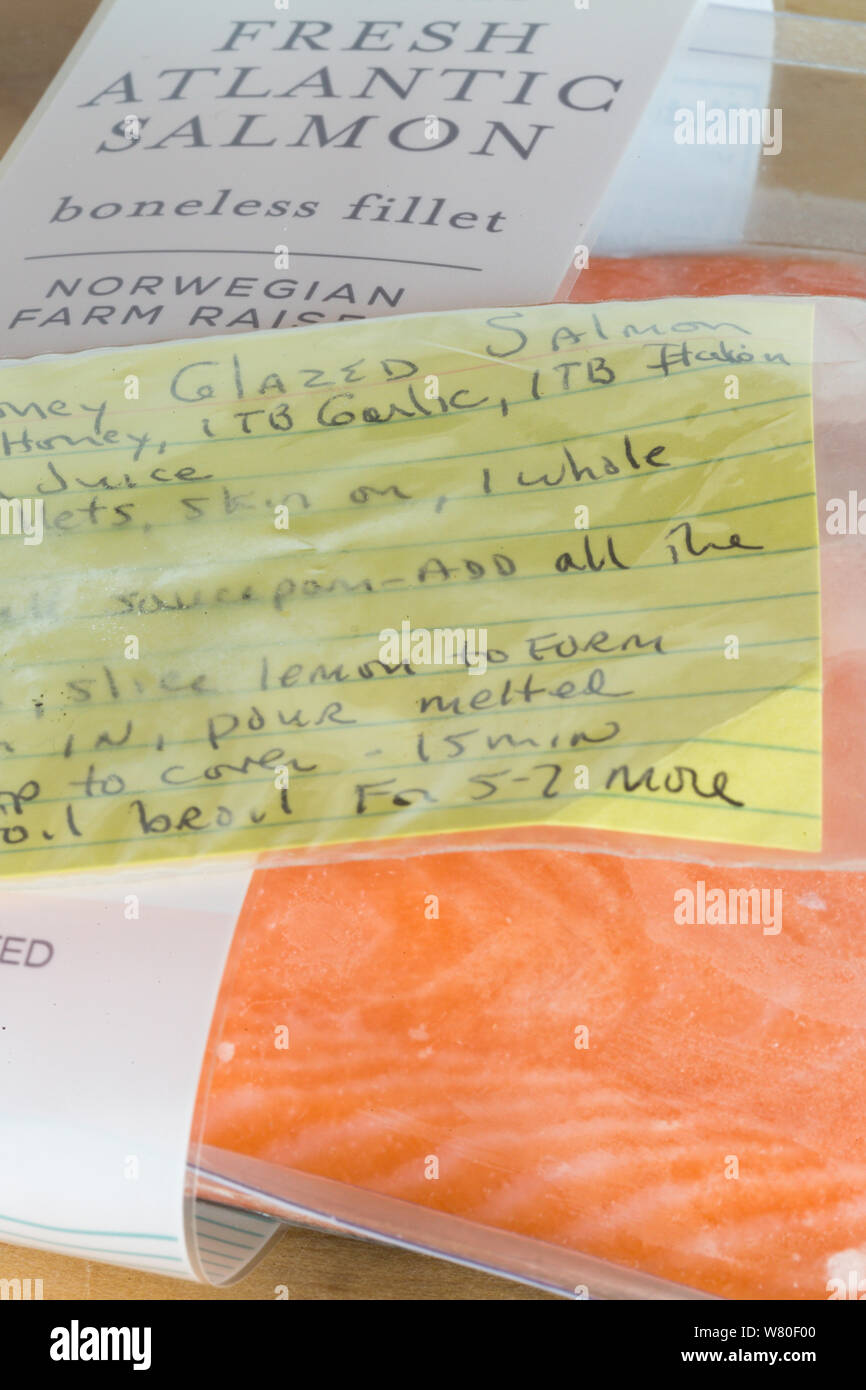 FRESH
ATLANTIC
SALMON
boneless fillet
NORWEGIAN
FARM RAISE
oney GlAZED SAlmon
Honey, 1 TB Garlic, 1 TB
Juice
lets, skin on, 1 whole
saucepan - ADD all The
, slice lemon to FORM
IN, pour melted
to cover - 15 min
broil For 5-7 more
TED
alamy
Image ID: W80F00
www.alamy.com